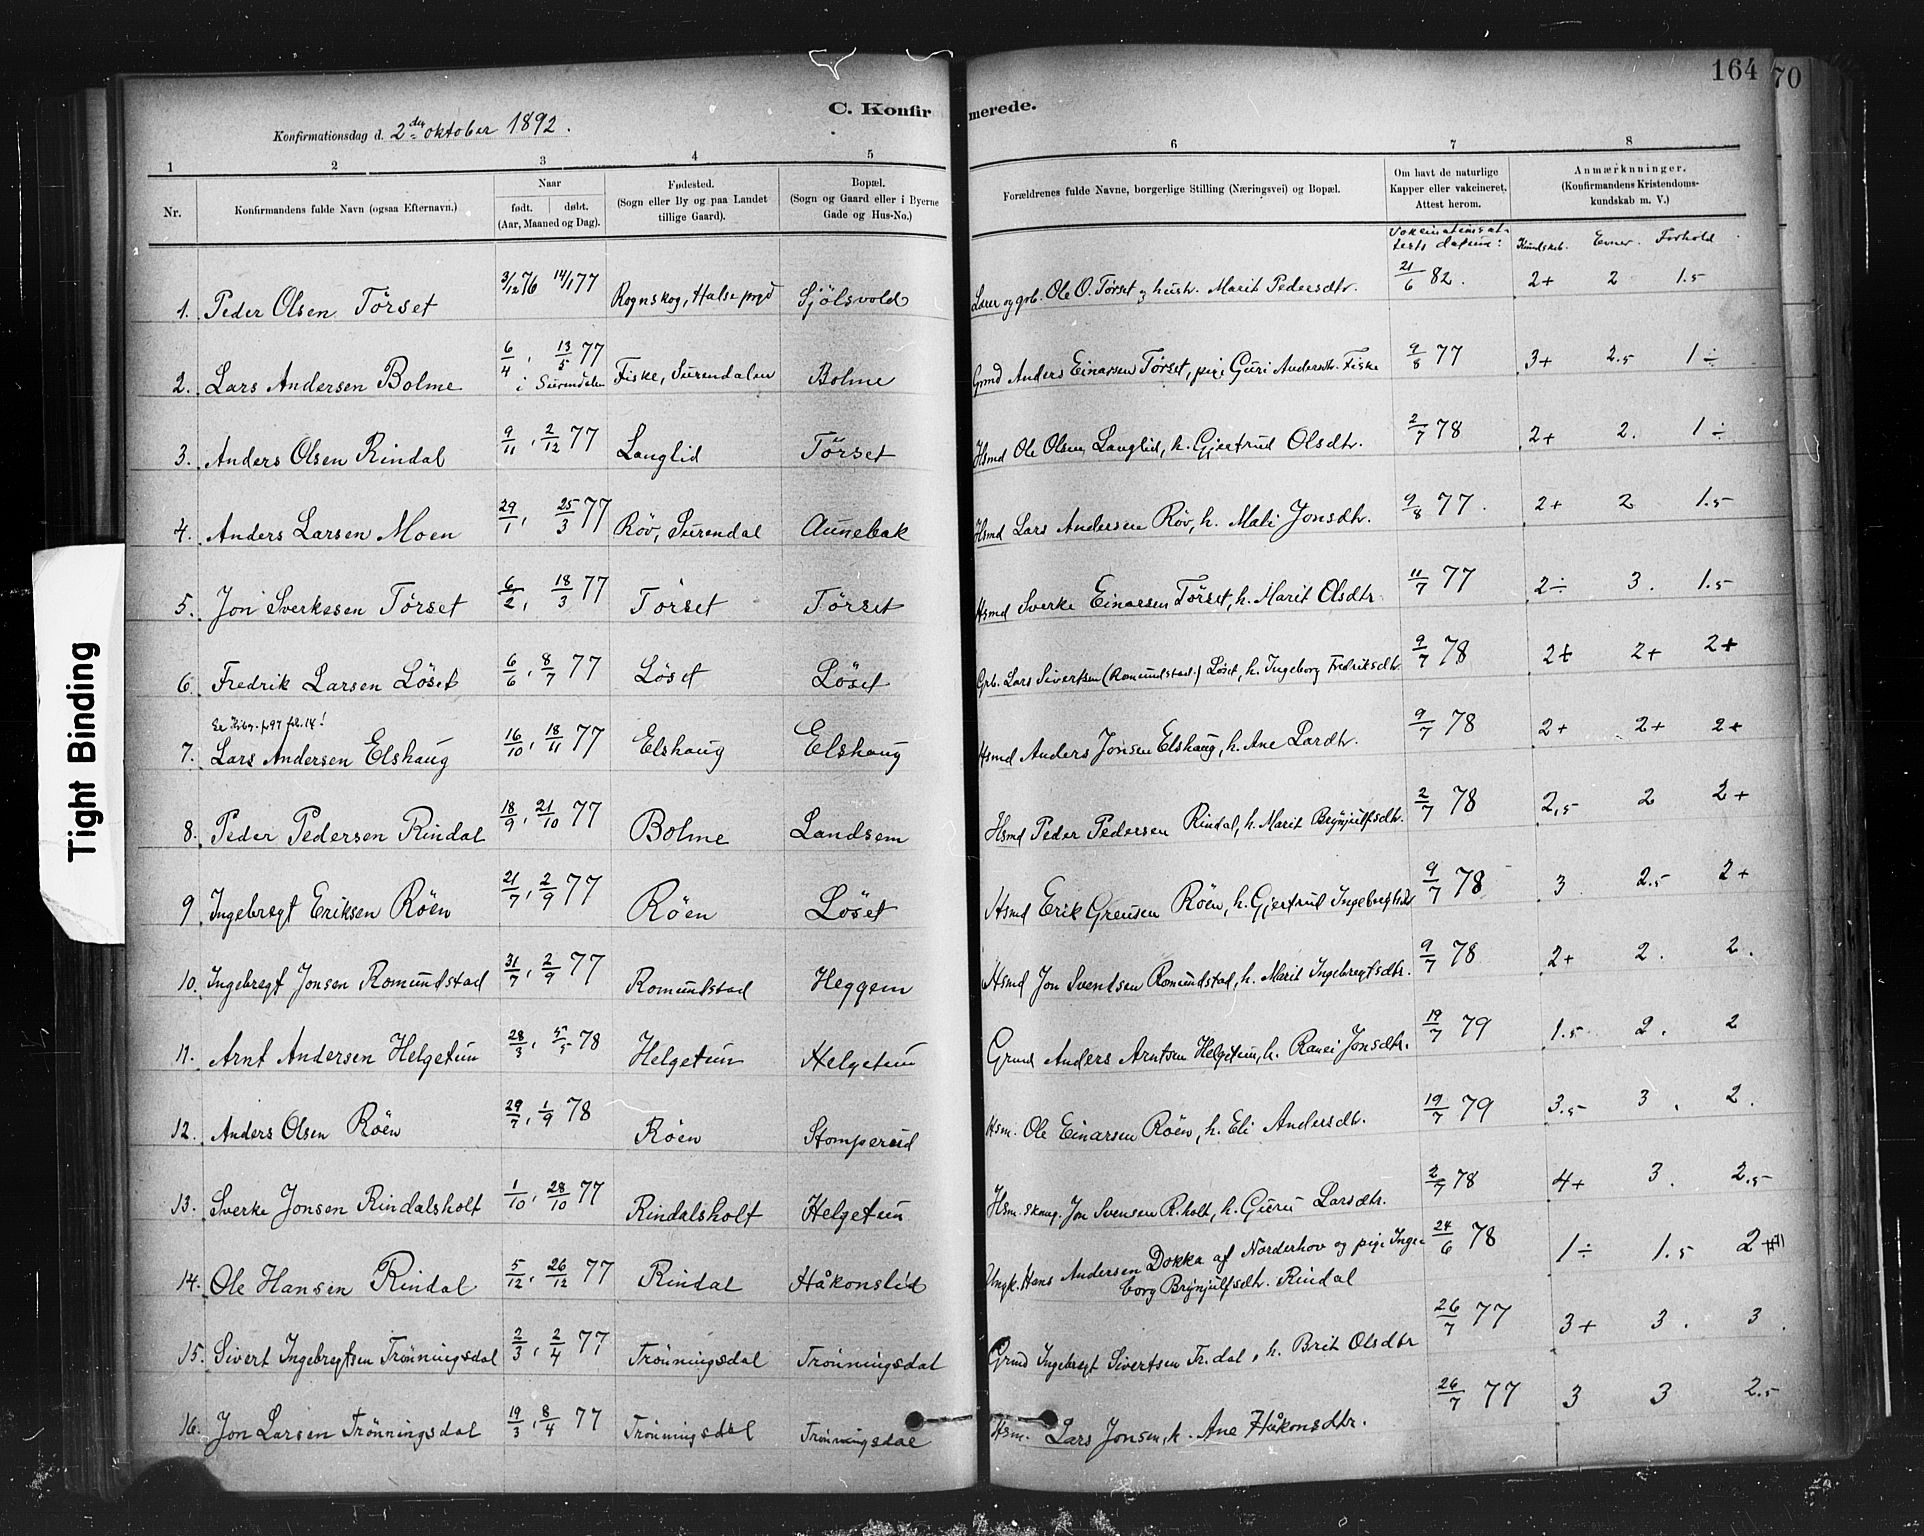 164
70
C. Konfirmerede.
Konfirmationsdag d. 2den oktober 1892.
1 2 3 4 5 6 7 8
Nr.
Konfirmandens fulde Navn (ogsaa Efternavn.)
Naar
født. døbt.
(Aar, Maaned og Dag).
Fødested.
(Sogn eller By og paa Landet
tillige Gaard).
Bopæl.
(Sogn og Gaard eller i Byerne
Gade og Hus-No.)
Forældrenes fulde Navne, borgerlige Stilling (Næringsvei) og Bopæl.
Om havt de naturlige
Kapper eller vakcineret.
Attest herom.
Anmærkninger.
(Konfirmandens Kristendoms-
kundskab m. V.)
Vakcinationsat-
tests datum:
Kundskab. Evner. Forhold
1. Peder Olsen Tørset 3/12 76 14/1 77 Rognskog, Halse prgd Sjölsvold Lærer og grb. Ole O. Tørset og hustr. Marit Pedersdtr. 21/6 82. 2+ 2 1.5
2. Lars Andersen Bolme 6/4, 13/5 77 i Surendalen Fiske, Surendalen Bolme Grmd Anders Einarsen Tørset, pige Guri Andersdtr. Fiske 9/8 77 3+ 2.5 1÷
3. Anders Olsen Rindal 9/11, 2/12 77 Langlid Tørset Hsmd Ole Olsen Langlid, h. Gjertrud Olsdtr. 2/7 78 2+ 2. 1÷
4. Anders Larsen Moen 29/1, 25/3 77 Röv, Surendal Aunebak Hsmd Lars Andersen Röv, h. Mali Jonsdtr. 9/8 77. 2+ 2 1.5
5. Jon Sverkesen Tørset 6/2, 18/3 77 Tørset Tørset Hsmd Sverke Einarsen Tørset, h. Marit Olsdtr. 11/7 77 2÷ 3. 1.5
6. Fredrik Larsen Löset 6/6, 8/7 77 Löset Löset Grb. Lars Sivertsen (Romundstad.) Löset, h. Ingeborg Fredriksdtr. 9/7 78 2+ 2+ 2+
7. Lars Andersen Elshaug 16/10, 18/11 77 Elshaug Elshaug Hsmd Anders Jonsen Elshaug, h. Ane Larsdtr. 9/7 78 2+ 2+ 2+
8. Peder Pedersen Rindal 18/9, 21/10 77 Bolme Landsem Hsmd Peder Pedersen Rindal, h. Marit Brynjulfsdtr. 2/7 78 2,5 2 2+
9. Ingebregt Eriksen Röen 21/7, 2/9 77 Röen Löset Hsmd Erik Greusen Röen, h. Gjertrud Ingebregtsdtr 9/7 78 3 2.5 2+
10. Ingebregt Jonsen Romundstad 31/7, 2/9 77 Romundstad Heggem Hsmd Jon Sventsen Romundstad, h. Marit Ingebregtsdtr. 9/7 78 2+ 2. 2.
11. Arnt Andersen Helgetun 28/3, 5/5 78 Helgetun Helgetun Grmd Anders Arntsen Helgetun, h. Ranei Jonsdtr. 19/7 79 1.5 2. 2
12. Anders Olsen Röen 29/7, 1/9 78 Röen Stomperud Hsm. Ole Einarsen Röen, h. Eli Andersdtr. 19/7 79 3.5 3. 2.
13. Sverke Jonsen Rindalsholt 1/10, 28/10 77 Rindalsholt Helgetun Hsm. skoug. Jon Svensen R.holt, h. Guru Larsdtr. 2/7 78 4+ 3. 2.5
14. Ole Hansen Rindal 5/12, 26/12 77 Rindal Håkonslid Ungk. Hans Andersen Dokka af Norderhov og pige Inge-
borg Brynjulfsdtr. Rindal 24/6 78 1÷ 1.5 2
15. Sivert Ingebregtsen Trönningsdal 2/3, 2/4 77 Trönningsdal Trönningsdal Grmd Ingebregt Sivertsen Tr.dal, h. Brit Olsdtr 26/7 77 3+ 3. 3.
16. Jon Larsen Trönningsdal 19/3, 8/4 77 Trönningsdal Trönningsdal Hsm. Lars Jonsen, h. Ane Håkonsdtr. 26/7 77 3 3 2.5
Tight Binding